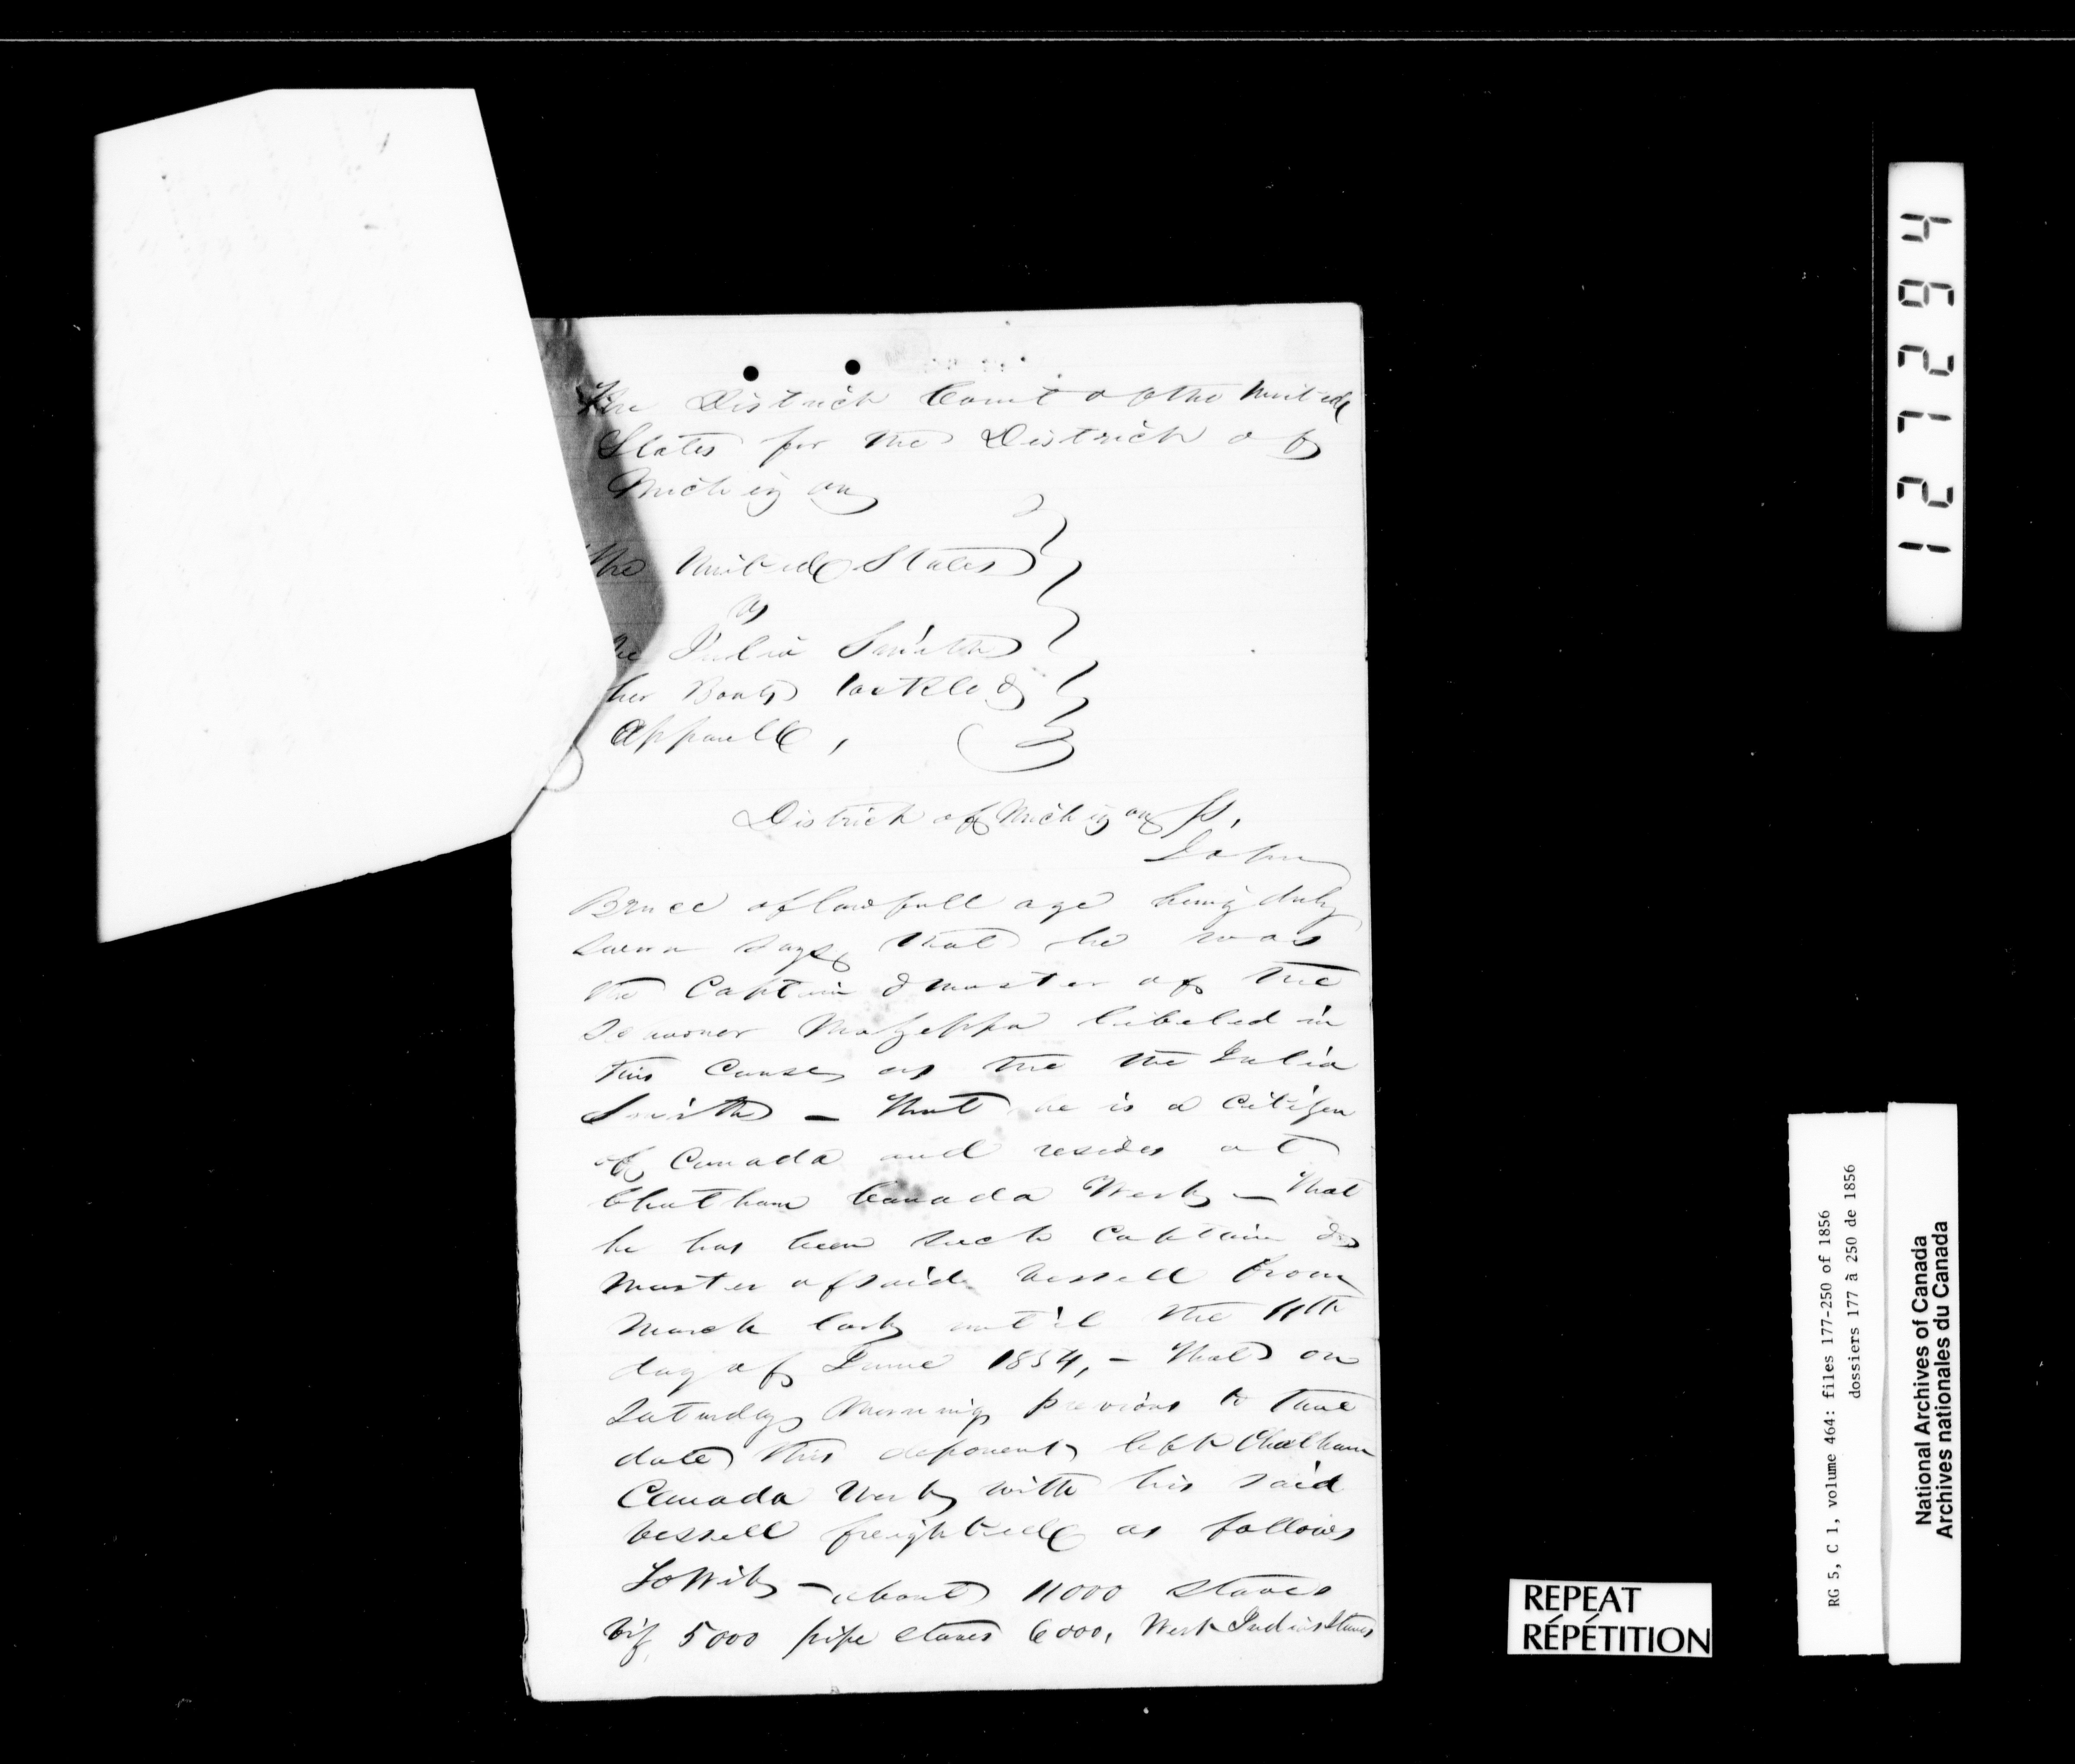 The District Court of the United
States for the District of
Michigan
The United States
vs
The Julia Smith
her Boats tackle &
Apparell,
District of Michigan ss,
John
Bruce of lawfull age being duly
sworn says that he was
the Captain & master of the
Schooner Mazeppa libeled in
this cause as the the Julia
Smith - That he is a citizen
of Canada and resides at
Chatham Canada West - That
he has been such Captain &
Master of said vessell from
March last until the 11th
day of June 1854, - That on
Saturday Morning previous to that
date this deponent left Chatham
Canada West with his said
vessell freighted as follows
To Wit - about 11000 staves
viz 5000 pipe staves 6000, West India Staves
1217294
RG 5, C 1, volume 464: files 177-250 of 1856
dossiers 177 à 250 de 1856
National Archives of Canada
Archives nationales du Canada
REPEAT
RÉPÉTITION